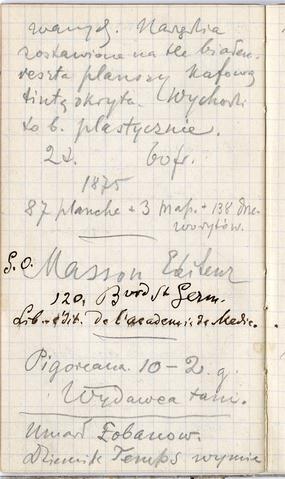 wanych. Narzędzia
zostawione na tle białem
reszta planszy kafową
tintą okryta. Wychodzi
to b. plastycznie.
2 t. 60 fr.
1875
87 planche + 3 map. + 138 drze-
worytów.
G. O. Masson Editeur
120, Bvrd St Germ.
Lib. - édit. de l'academie de Medic.
Pigoreana. 10 - 2. g.
Wydawca tani.
Umarł Łobanow.
Dziennik Temps